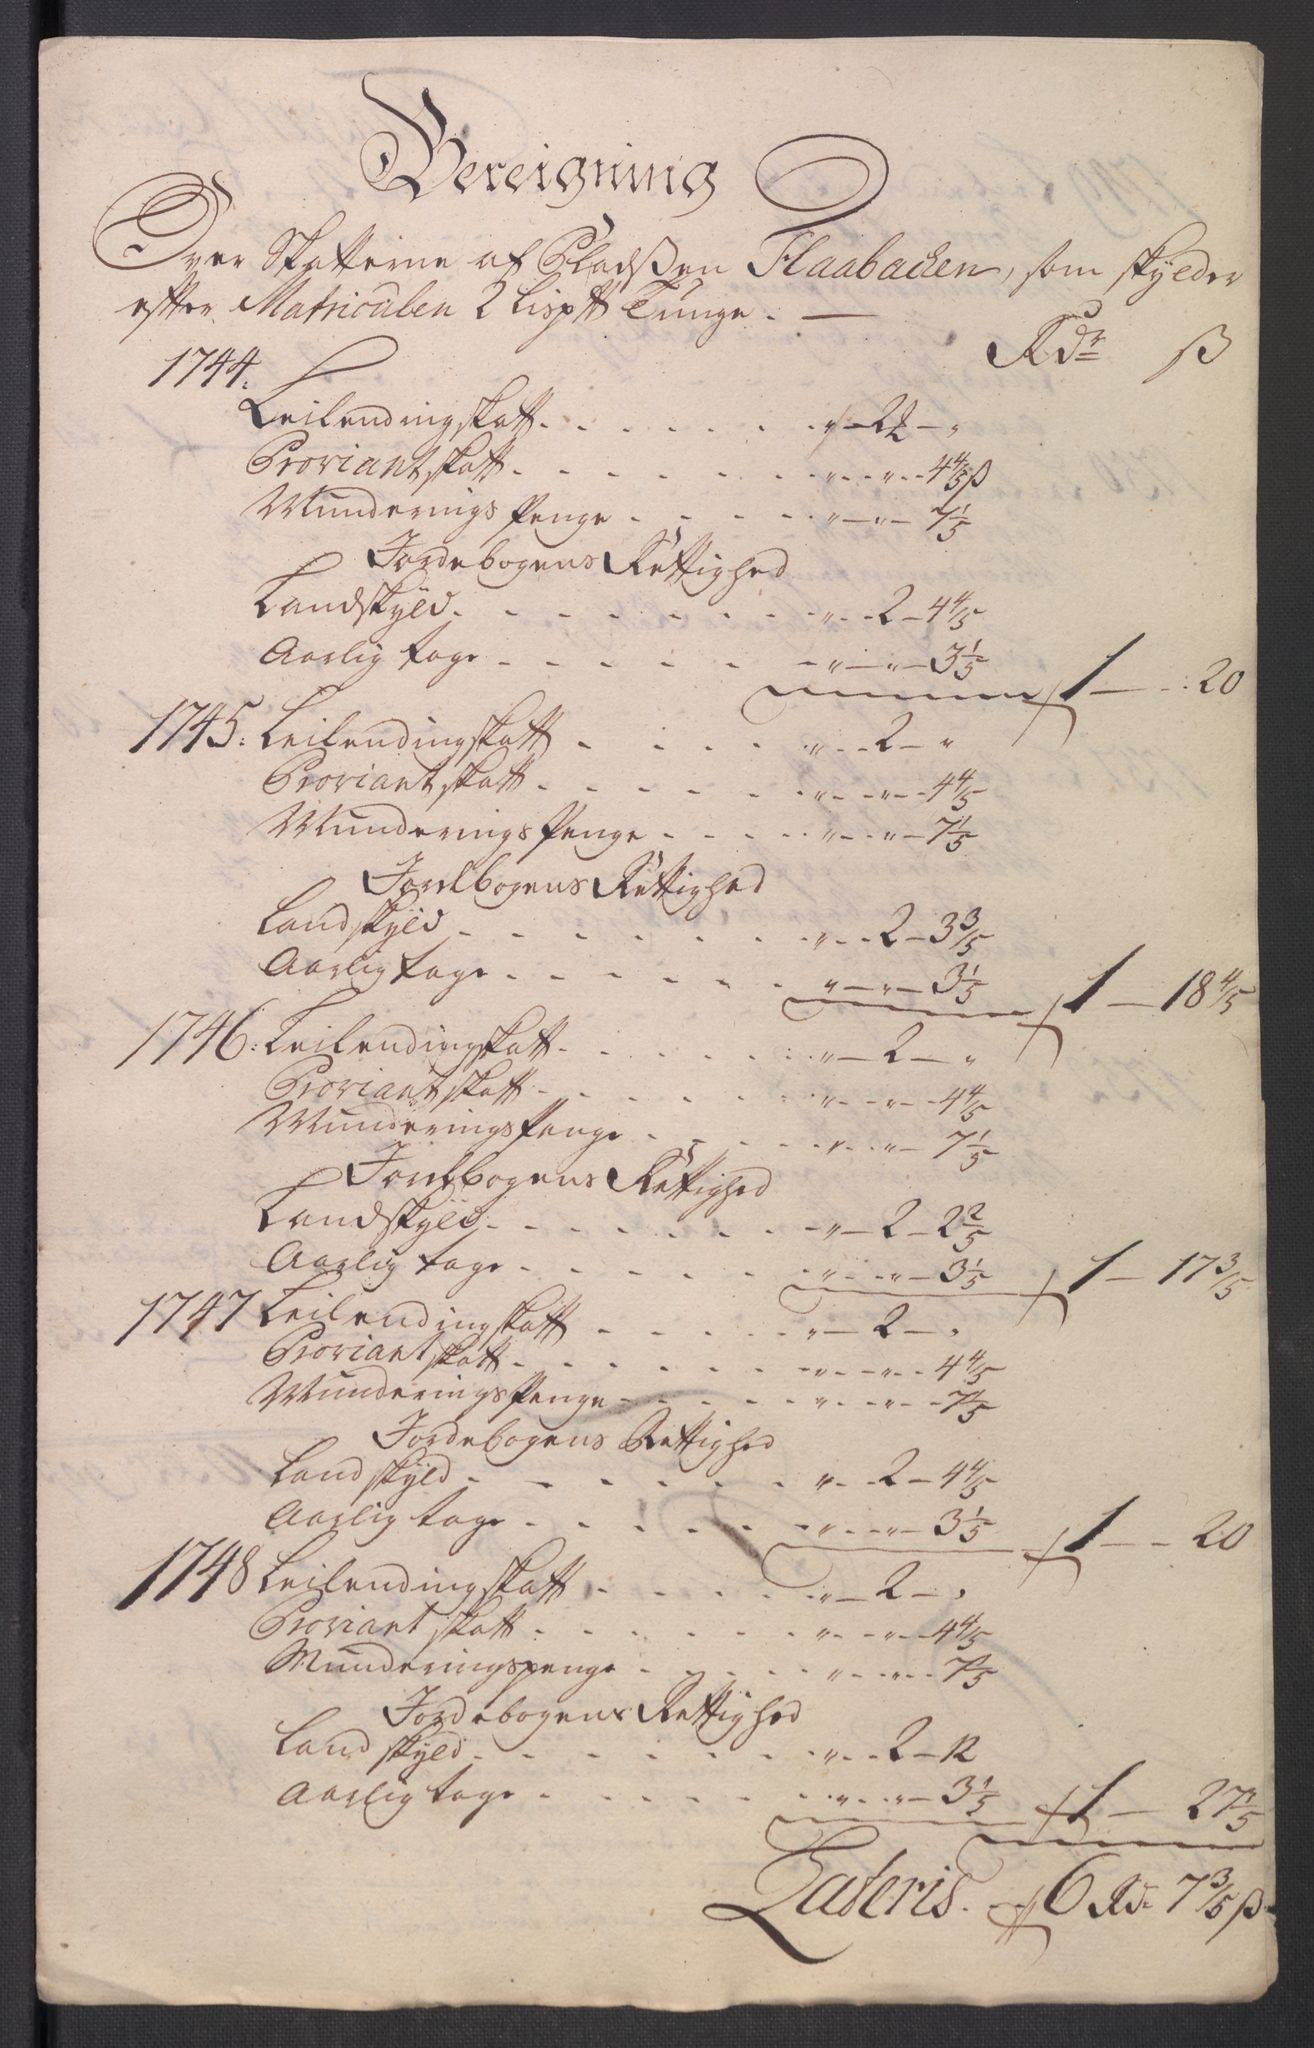 Bereigning
Over Skatterne af Pladsßen Flaabachen, som skylder
efter Matriculen 2 Lisp℔ Tunge. —
Rdr ß
1744.
Leilendingskatt . . . . . . " — 2½ — "
Proviantskatt . . . . . . " - - " - - 4 4/5 ß
Munderings Penge . . . . . " — " — 7 1/5
Jordebogens Rettighed
Landskyld . . . . . . . " - - 2 — 4 4/5
Aarlig tage . . . . . . " — " — 3 1/5 1 — - 20
1745. Leilendingskatt . . . . " - - 2 — "
Proviantskatt . . . . . . " - - " - - 4 4/5
Munderings Penge . . . . . " - - " — 7 1/5
Jordebogens Rettighed
Landskyld . . . . . . . " - - 2 — 3 3/5
Aarlig tage . . . . . . " — " — 3 1/5 1 — 18 4/5
1746. Leilendingskatt . . . . . . " — 2 — "
Proviantskatt . . . . . . " - - " — 4 4/5
Munderings Penge . . . . . " - - " — 7 1/5
Jordebogens Rettighed
Landskyld . . . . . . . " — 2 - 2 2/5
Aarlig tage . . . . . . " - - " — 3 1/5 1 — 17 3/5
1747 Leilendingskatt . . . . . " — 2 — "
Proviantskatt . . . . . . " - - " - - 4 4/5
Munderings Penge . . . . . " - - " - - 7 1/5
Jordebogens Rettighed
Landskyld . . . . . . . " - - 2 — 4 4/5
Aarlig tage . . . . . . " - - " — 3 1/5 1 — - 20
1748 Leilendingskatt . . . . . " — 2 — "
Proviant skatt . . . . . . " - - " - - 4 4/5
Munderingspenge . . . . . " - - " - - 7 1/5
Jordebogens Rettighed
Landskyld . . . . . . . " - - 2 — 12
Aarlig tage . . . . . . " - - " — 3 1/5 1 — 27 1/5
Lateris. 6 Rd. 7 3/5 ß